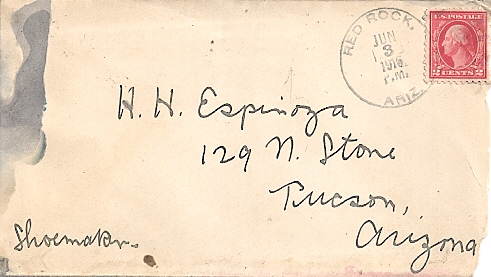 RED ROCK,
JUN
3
1916
P.M.
ARIZ.
U.S. POSTAGE
2 CENTS 2
H. H. Espinoza
129 N. Stone
Tucson,
Arizona
Shoemakr.